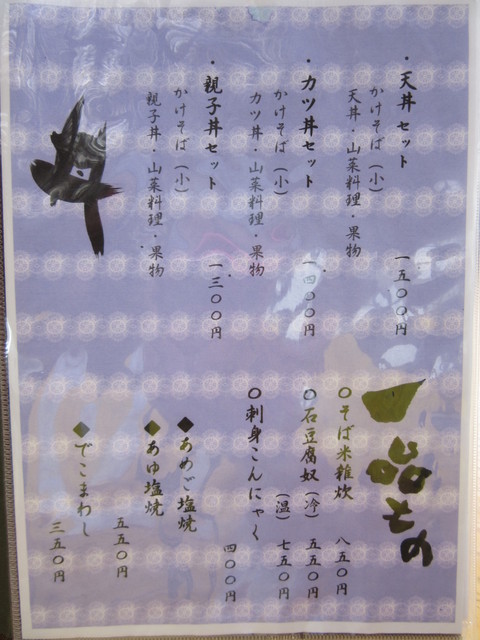 ・天丼セット
かけそば（小）
天丼・山菜料理・果物
一五〇〇円
・カツ丼セット
かけそば（小）
カツ丼・山菜料理・果物
一四〇〇円
・親子丼セット
かけそば（小）
親子丼・山菜料理・果物
一三〇〇円
丼
一品もの
〇そば米雑炊 八五〇円
〇石豆腐奴（冷）五五〇円
（温）七五〇円
〇刺身こんにゃく
四〇〇円
◆あめご塩焼
◆あゆ塩焼
五五〇円
◆でこまわし
三五〇円